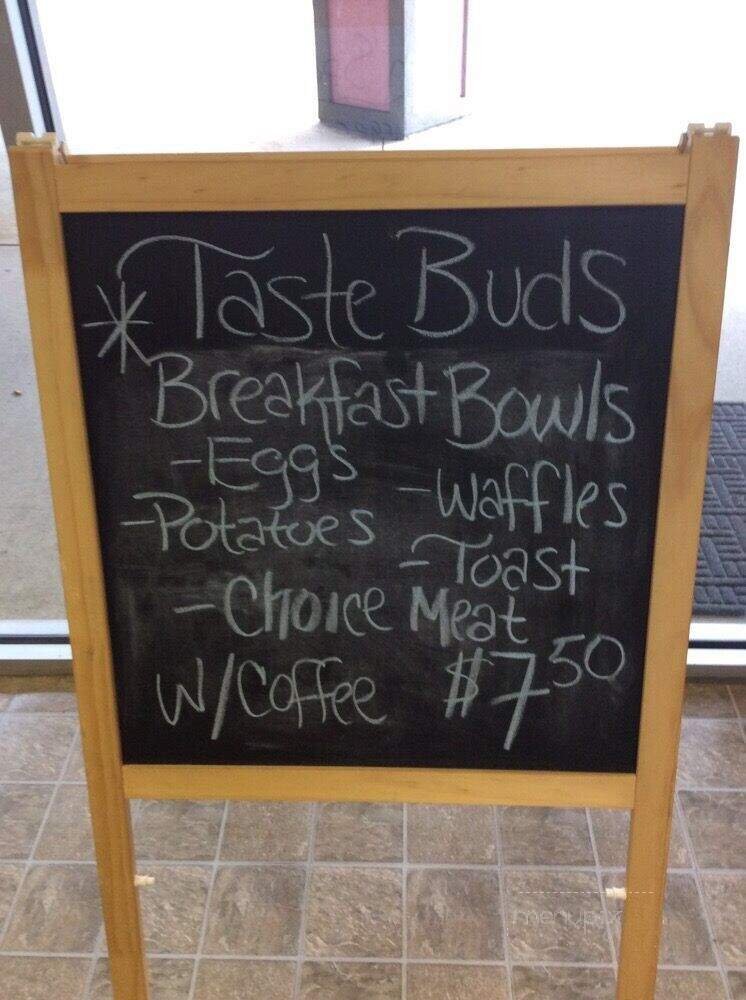 Taste Buds
* Breakfast Bowls
- Eggs
- Waffles
- Potatoes
- Toast
- Choice Meat
W/Coffee $7.50
menupix